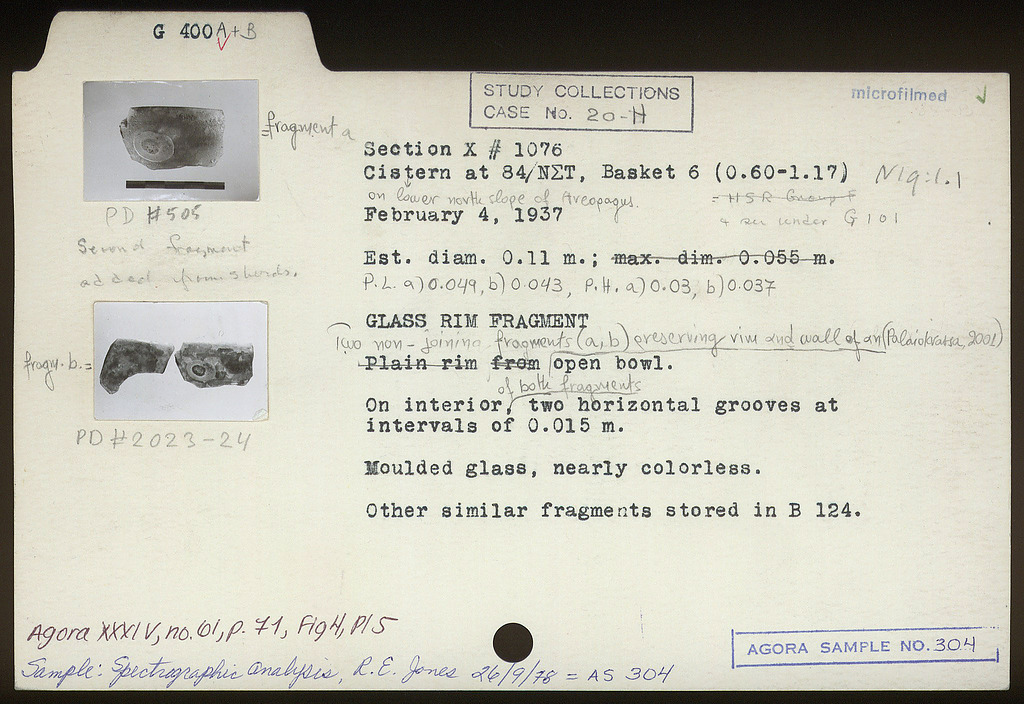 G 400 A + B
STUDY COLLECTIONS
CASE No. 20-H
microfilmed
= fragment a
PD #505
Second fragment
added from sherds.
fragm. b. =
PD #2023-24
Section X # 1076
Cistern at 84/ΝΣΤ, Basket 6 (0.60-1.17) N19:1.1
on lower north slope of Areopagus.
= HSR Group F
February 4, 1937
+ see under G 101
Est. diam. 0.11 m.; max. dim. 0.055 m.
P.L. a) 0.049, b) 0.043, P.H. a) 0.03, b) 0.037
GLASS RIM FRAGMENT
Two non-joining fragments (a, b) preserving rim and wall of an (Palaiokrassa, 2001)
Plain rim from open bowl.
of both fragments
On interior, two horizontal grooves at
intervals of 0.015 m.
Moulded glass, nearly colorless.
Other similar fragments stored in B 124.
Agora XXXIV, no. 61, p. 71, Fig 4, Pl 5
Sample: Spectrographic analysis, R.E. Jones 26/9/78 = AS 304
AGORA SAMPLE NO. 304